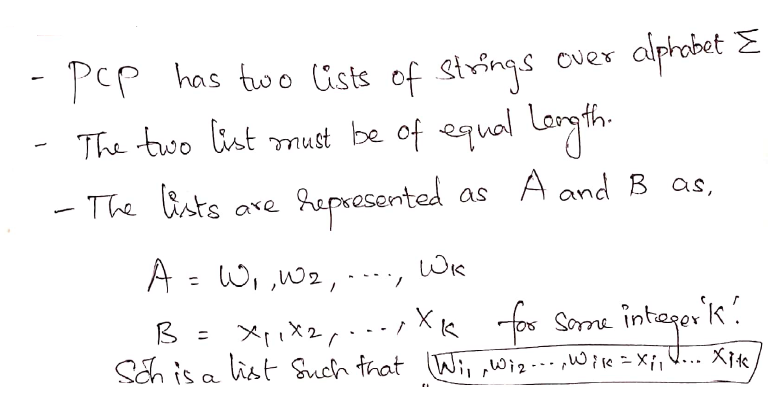 - PCP has two lists of strings over alphabet Σ
- The two list must be of equal length.
- The lists are represented as A and B as,
A = W1, W2, ...., WK
B = X1, X2, ...., XK for some integer 'K'.
Soln is a list such that Wi1, Wi2 ..., Wik = Xi1, ... Xik